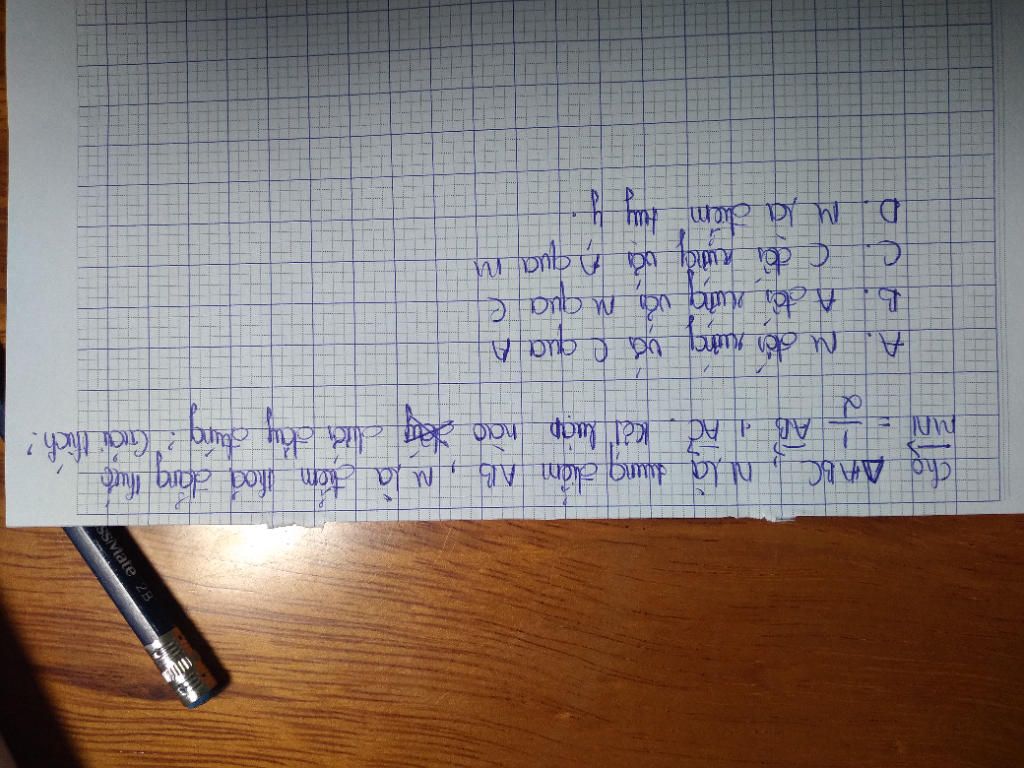 Cho ΔABC, N là trung điểm AB, M là điểm thoả đẳng thức
$\overrightarrow{MN} = \frac{1}{2} \overrightarrow{AB} + \overrightarrow{AC}$. Kết luận nào dưới đây đúng? Giải thích?
A. M đối xứng với C qua A
B. A đối xứng với M qua C
C. C đối xứng với A qua M
D. M là điểm tuỳ ý.
ssMate 2B